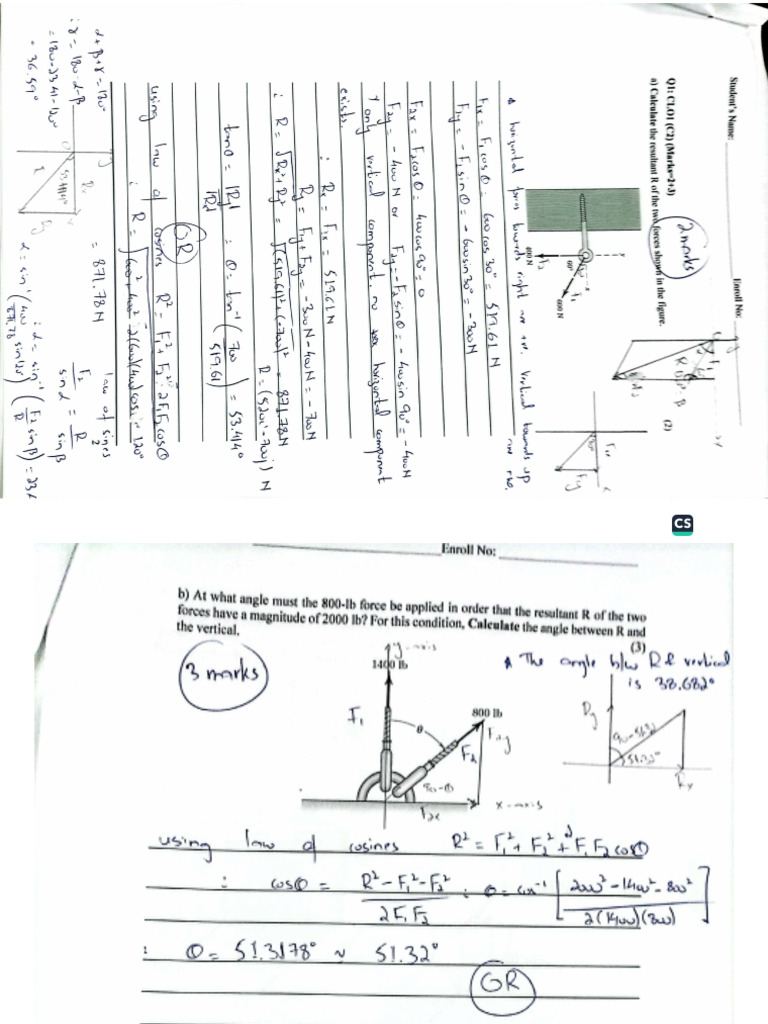 Student's Name:
Enroll No:
Q1: CLO1 (C2) (Marks=2+3)
a) Calculate the resultant R of the two forces shown in the figure.
(2)
2 marks
600 N
400 N
60°
* horizontal forces towards right are +ve. Vertical towards up are +ve.
F1x = F1 cos θ = 600 cos 30° = 519.61 N
F1y = - F1 sin θ = - 600 sin 30° = - 300N
F2x = F2 cos θ = 400 cos 90° = 0
F2y = - 400 N or F2y = - F2 sin θ = - 400 sin 90° = - 400N
only vertical component, no horizontal component
exists.
∴ Rx = F1x = 519.61 N
Ry = F1y + F2y = - 300 N - 400N = - 700N
∴ R = √Rx²+Ry² = √(519.61)²+(-700)² = 871.78N
R = (520i - 700j) N
tan θ = |Ry| / |Rx| ∴ θ = tan⁻¹ (700 / 519.61) = 53.414°
OR
using law of cosines R² = F1² + F2² - 2F1F2 cos θ
∴ R = √600² + 400² - 2(600)(400) cos 120°
= 871.78 N
law of sines
F2 / sin α = R / sin β
∴ α = sin⁻¹ (F2 sin β / R)
α = sin⁻¹ (400 sin 120° / 871.78)
α + β + γ = 180°
∴ γ = 180 - α - β
= 180 - 23.41 - 120°
= 36.59°
CS
Enroll No:
b) At what angle must the 800-lb force be applied in order that the resultant R of the two
forces have a magnitude of 2000 lb? For this condition, Calculate the angle between R and
the vertical.
(3)
3 marks
* The angle b/w R & vertical
is 38.682°
y-axis
1400 lb
F1
θ
800 lb
F2y
F2
90-θ
F2x
x-axis
Ry
51.32°
Rx
using law of cosines R² = F1² + F2² + 2 F1 F2 cos θ
∴ cos θ = R² - F1² - F2² / 2 F1 F2 ∴ θ = cos⁻¹ [2000² - 1400² - 800² / 2(1400)(800)]
∴ θ = 51.3178° ≈ 51.32°
OR